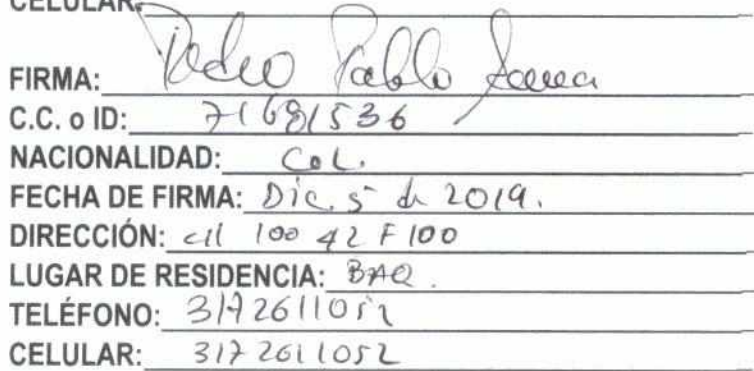 CELULAR:
FIRMA: Pedro Pablo
C.C. o ID: 71681536
NACIONALIDAD: Col.
FECHA DE FIRMA: Dic. 5 de 2019.
DIRECCIÓN: cll 100 42 F 100
LUGAR DE RESIDENCIA: BAQ.
TELÉFONO: 3172611052
CELULAR: 3172611052